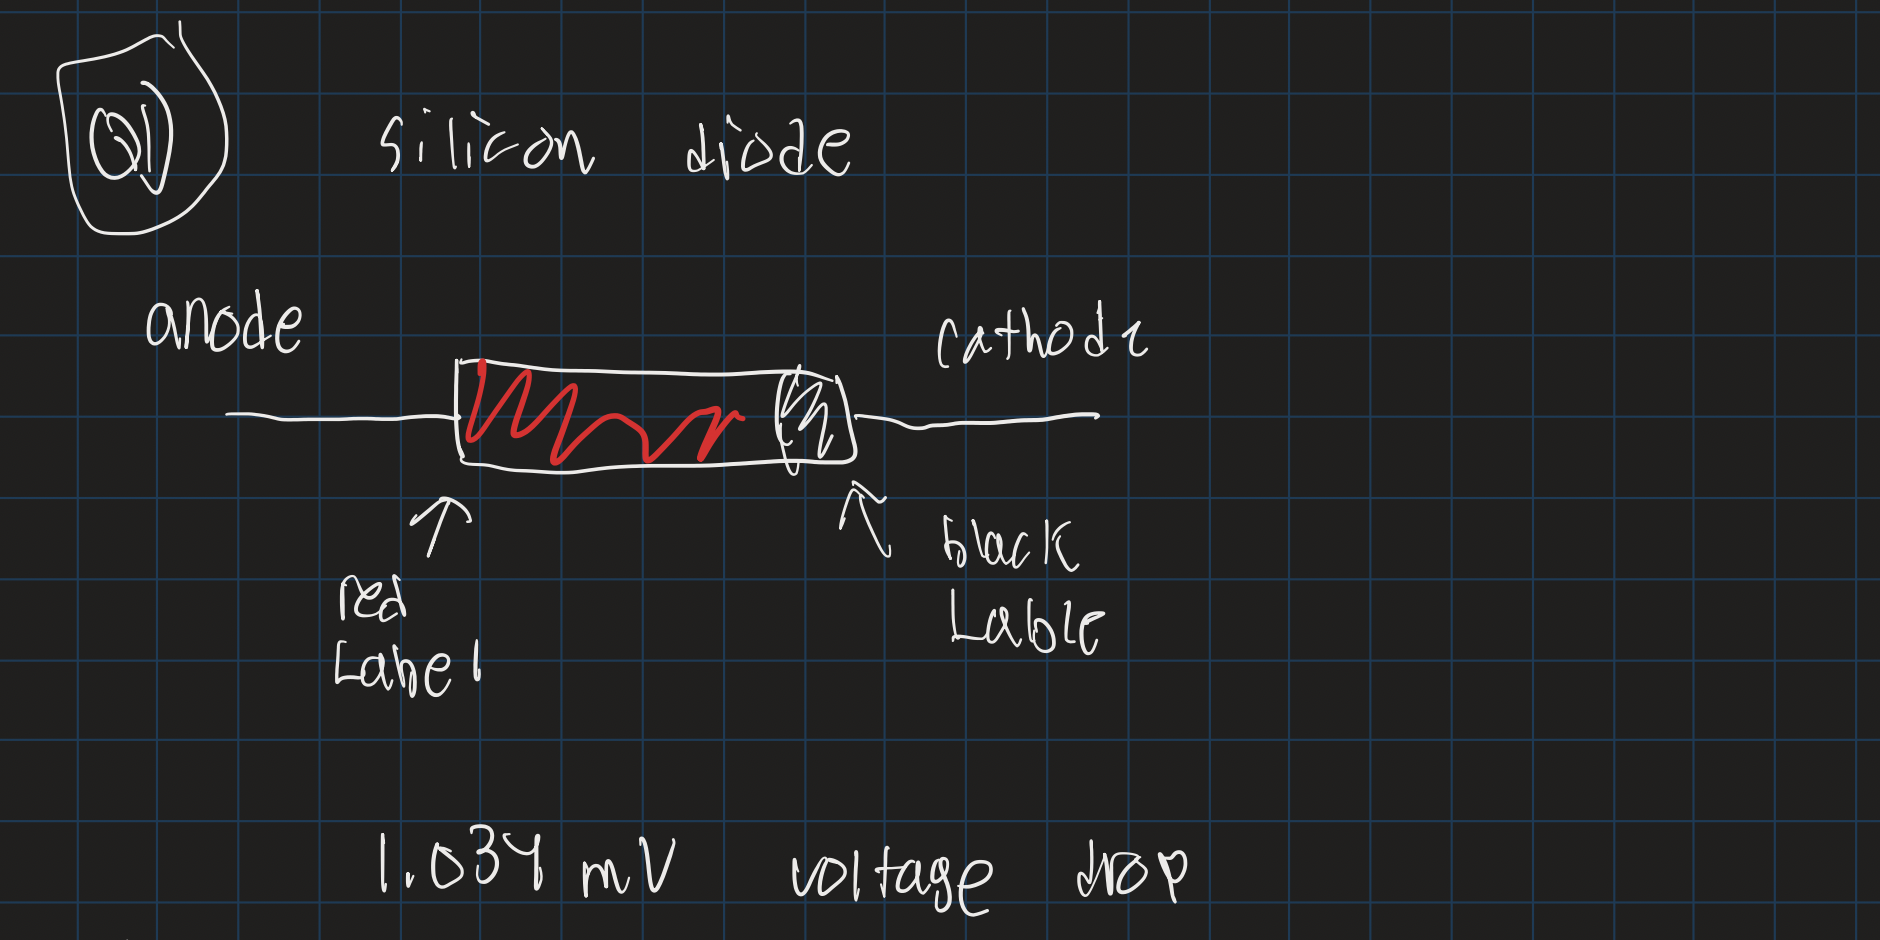 Q1)
silicon diode
anode
cathode
red
Label
black
Lable
1.034 mV voltage drop